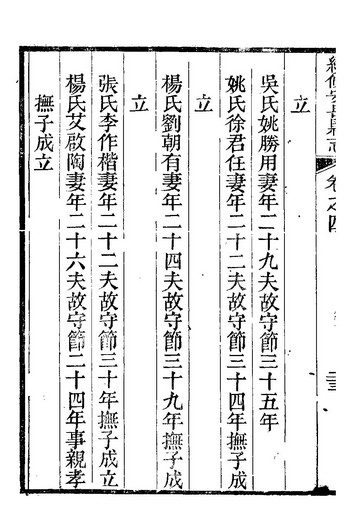 卷之四
立
吳氏姚勝用妻年二十九夫故守節三十五年
姚氏徐君任妻年二十二夫故守節三十四年撫子成
立
楊氏劉朝有妻年二十四夫故守節三十九年撫子成
立
張氏李作楷妻年二十二夫故守節三十年撫子成立
楊氏艾啟陶妻年二十六夫故守節二十四年事親孝
撫子成立